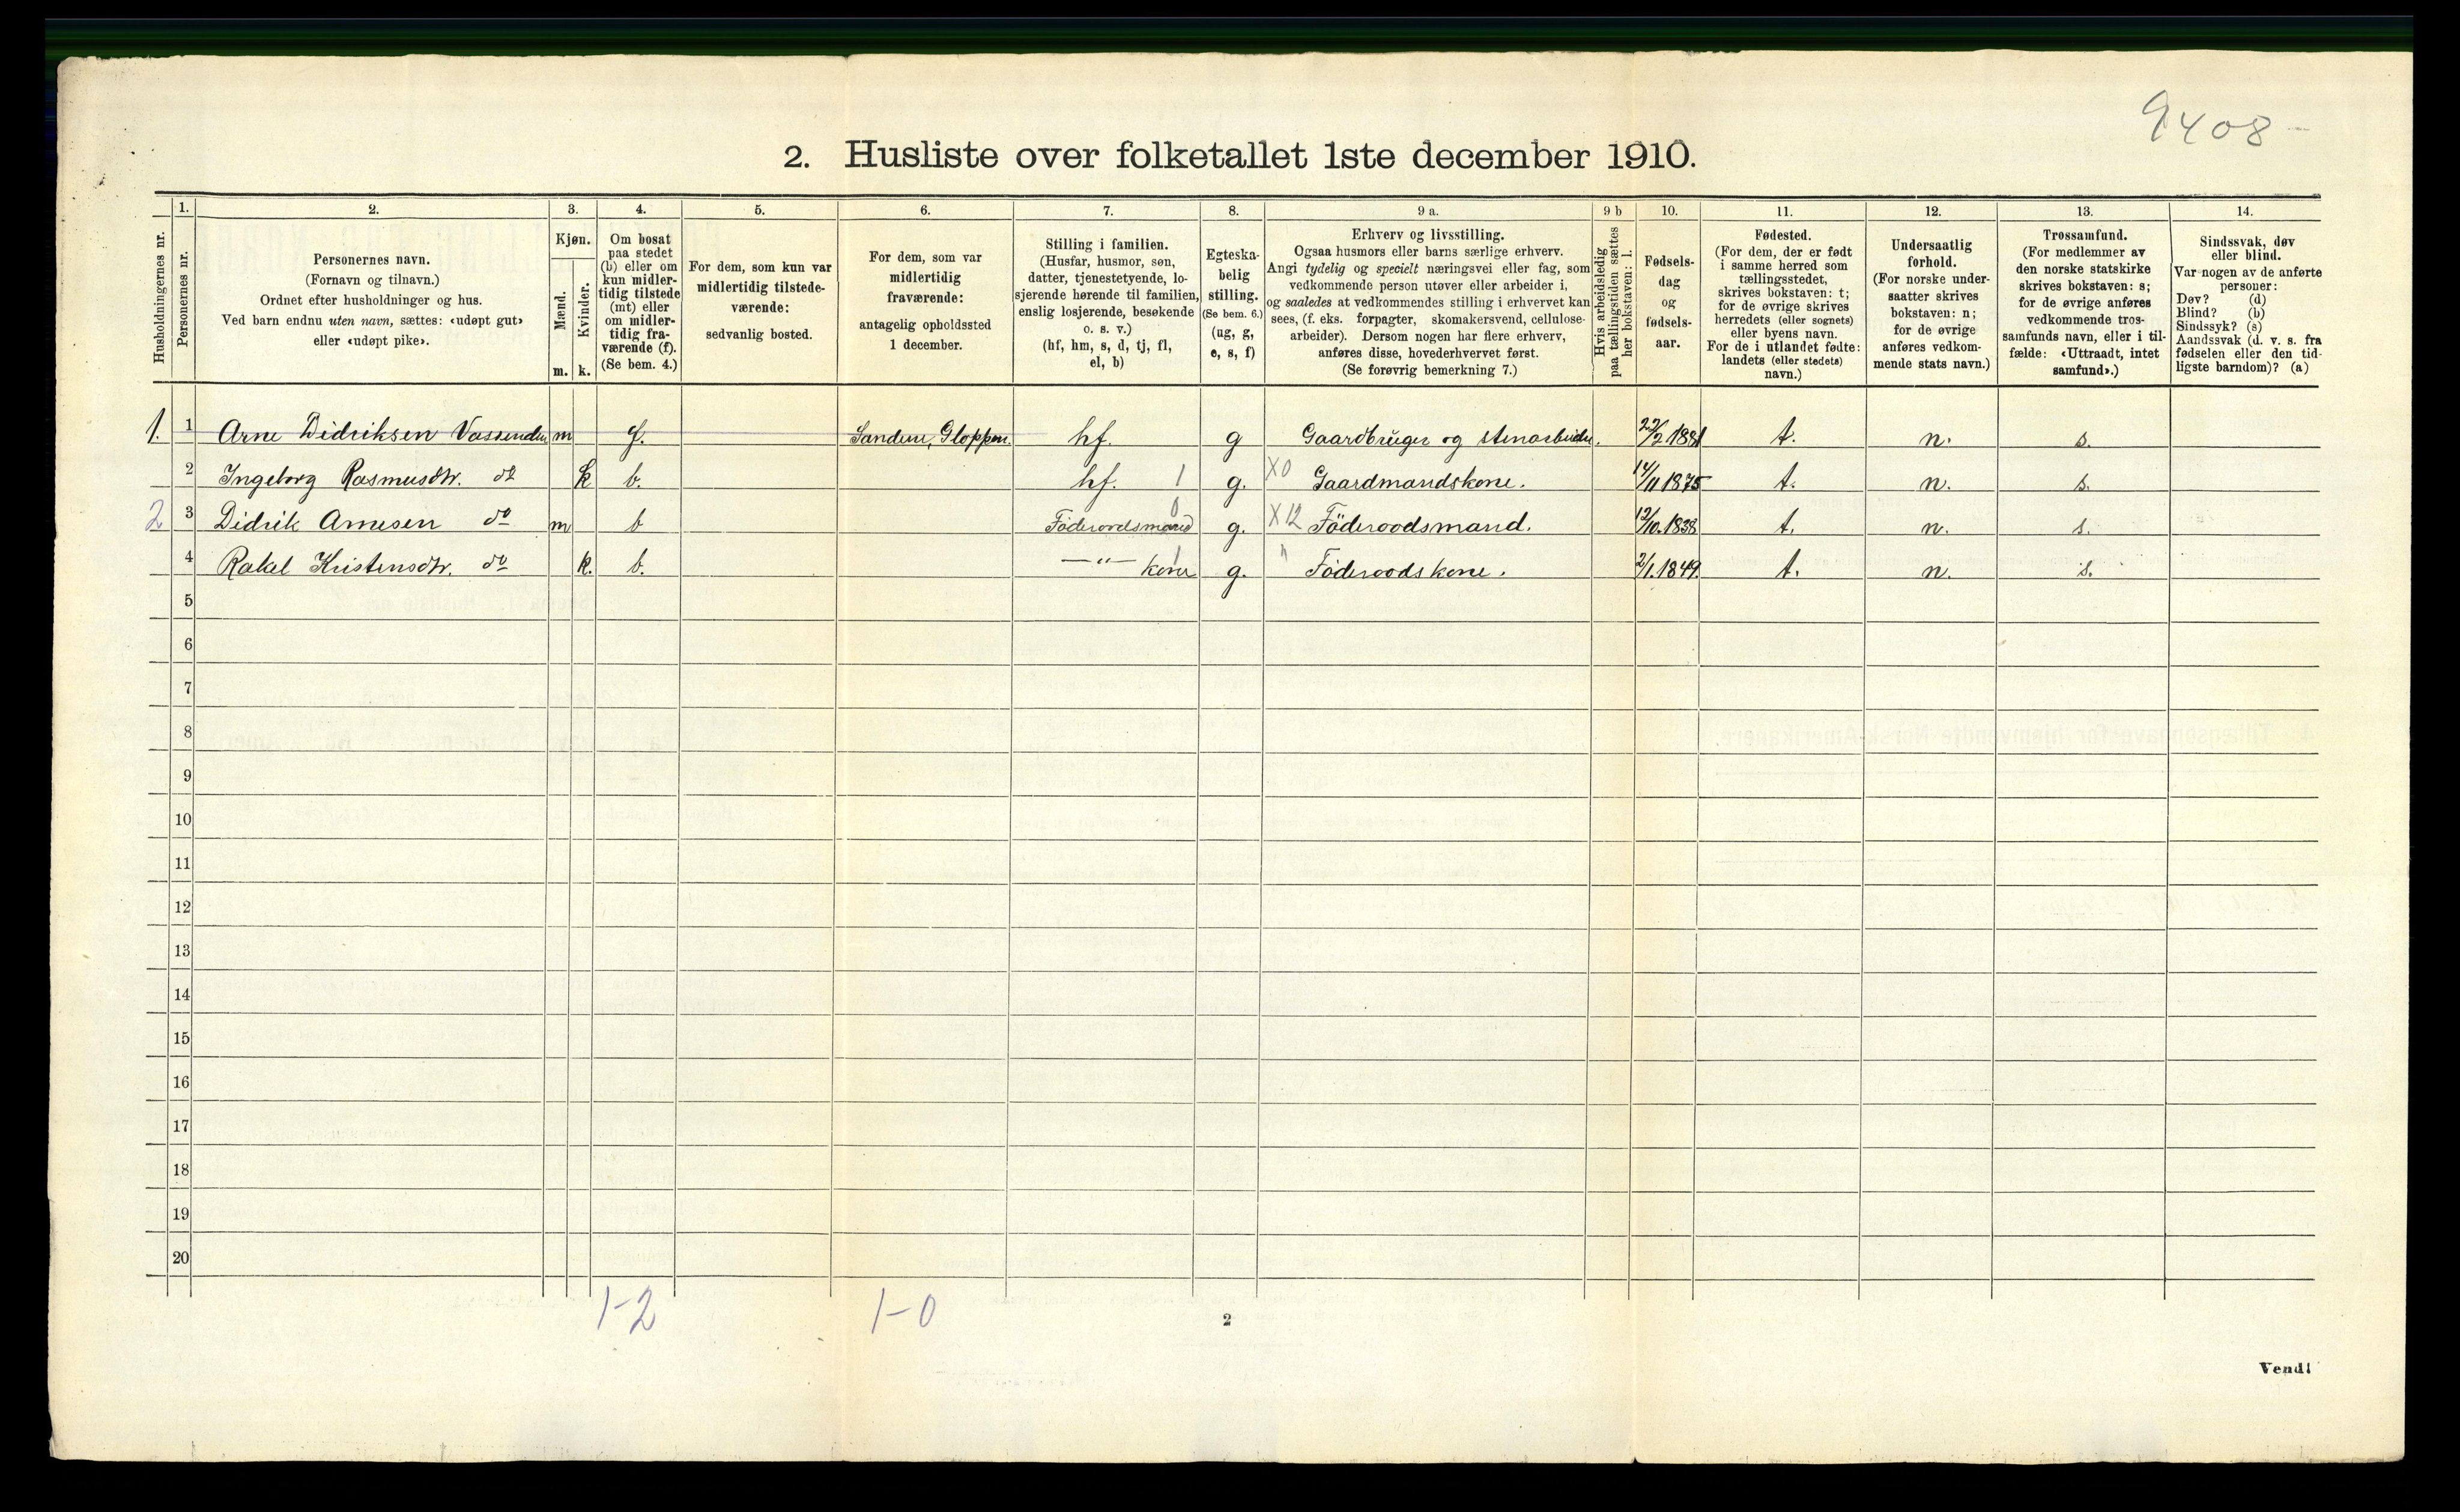 9408
2. Husliste over folketallet 1ste december 1910.
Husholdningernes nr.
1. Personernes nr.
2. Personernes navn.
(Fornavn og tilnavn.)
Ordnet efter husholdninger og hus.
Ved barn endnu uten navn, sættes: «udøpt gut»
eller «udøpt pike».
3. Kjøn.
Mænd. m.
Kvinder. k.
4. Om bosat
paa stedet
(b) eller om
kun midler-
tidig tilstede
(mt) eller
om midler-
tidig fra-
værende (f).
(Se bem. 4.)
5. For dem, som kun var
midlertidig tilstede-
værende:
sedvanlig bosted.
6. For dem, som var
midlertidig
fraværende:
antagelig opholdssted
1 december.
7. Stilling i familien.
(Husfar, husmor, søn,
datter, tjenestetyende, lo-
sjerende hørende til familien,
enslig losjerende, besøkende
o. s. v.)
(hf, hm, s, d, tj, fl,
el, b)
8. Egteska-
belig
stilling.
(Se bem. 6.)
(ug, g,
e, s, f)
9 a. Erhverv og livsstilling.
Ogsaa husmors eller barns særlige erhverv.
Angi tydelig og specielt næringsvei eller fag, som
vedkommende person utøver eller arbeider i,
og saaledes at vedkommendes stilling i erhvervet kan
sees, (f. eks. forpagter, skomakersvend, cellulose-
arbeider). Dersom nogen har flere erhverv,
anføres disse, hovederhvervet først.
(Se forøvrig bemerkning 7.)
9 b Hvis arbeidsledig
paa tællingstiden sættes
her bokstaven: l.
10. Fødsels-
dag
og
fødsels-
aar.
11. Fødested.
(For dem, der er født
i samme herred som
tællingsstedet,
skrives bokstaven: t;
for de øvrige skrives
herredets (eller sognets)
eller byens navn.
For de i utlandet fødte:
landets (eller stedets)
navn.)
12. Undersaatlig
forhold.
(For norske under-
saatter skrives
bokstaven: n;
for de øvrige
anføres vedkom-
mende stats navn.)
13. Trossamfund.
(For medlemmer av
den norske statskirke
skrives bokstaven: s;
for de øvrige anføres
vedkommende tros-
samfunds navn, eller i til-
fælde: «Uttraadt, intet
samfund».)
14. Sindssvak, døv
eller blind.
Var nogen av de anførte
personer:
Døv? (d)
Blind? (b)
Sindssyk? (s)
Aandssvak (d. v. s. fra
fødselen eller den tid-
ligste barndom)? (a)
1. 1 Arne Didriksen Vassenden m f. Sandene, Gloppen. hf. g Gaardbruger og stenarbeider. 22/2 1881 t. n. s.
2 Ingeborg Rasmusdtr. do k b. hf. 1 g. X0 Gaardmandskone. 14/11 1875 t. n. s.
2 3 Didrik Arnesen do m b Föderaadsmand 0 g. X12 Föderaadsmand. 12/10.1838 t. n. s.
4 Rakel Kristensdtr. do k. b. —"— kone 1 g. " Föderaadskone. 2/1.1849. t. n. s.
5
6
7
8
9
10
11
12
13
14
15
16
17
18
19
20
1-2 1-0
2
Vend!